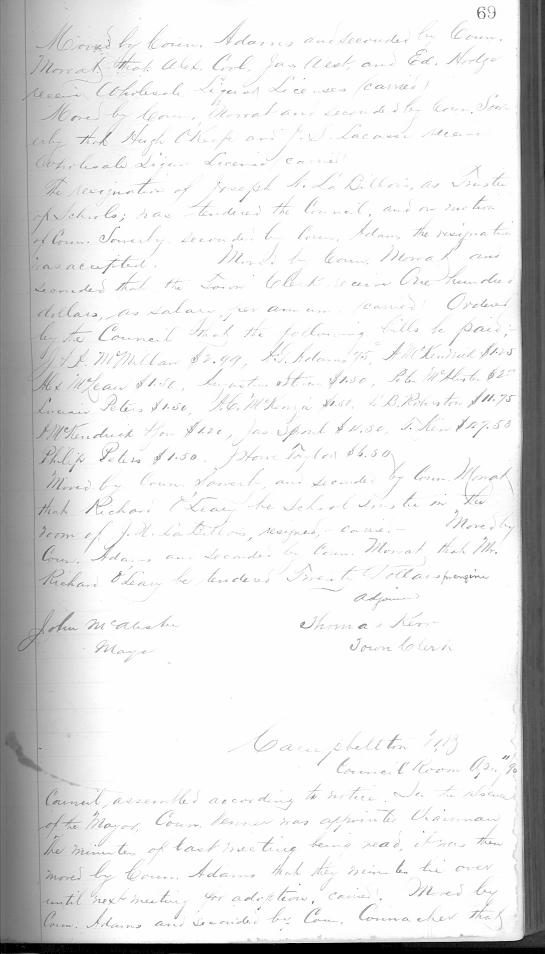 69
Moved by Coun. Adams and seconded by Coun.
Mowat, that Alex. Jas West, and Ed.
receive Wholesale Liquor Licenses (carried)
Moved by Coun. Mowat and seconded by Coun. Sow-
erby that Hugh O'Keefe and J. S. receive
Wholesale Liquor License carried
The resignation of Joseph H. LaBillois, as Trustee
of Schools; was tendered the Council, and on motion
of Coun. Sowerby, seconded by Coun. Adams the resignation
was accepted. Moved by Coun. Mowat and
seconded that the Town Clerk receive One hundred
dollars, as salary, per annum (carried) Ordered
by the Council that the following bills be paid;-
McMillan $2.99, Adams 95, McKendrick $1.25
Alex McLean $1.50, $1.50, Peter
Peters $1.50, McKenzie $1.50, B. Robertson $11.75
McKendrick $1.20, Jas
Philip Peters $1.50. Taylor $6.50
Moved by Coun. Sowerby, and seconded by Coun. Mowat
that Richard O'Leary be school trustee in the
room of J. H. LaBillois, resigned, - carried - Moved by
Coun. Adams and seconded by Coun. Mowat that Mr.
Richard O'Leary be tendered Dollars
Adjourned
John McAlister Thomas Kerr
Mayor Town Clerk
Campbellton N.B.
Council Room
Council, assembled according to notice. In the absence
of the Mayor, Coun. was appointed Chairman
The minutes of last meeting being read, it was then
moved by Coun. Adams that they minutes lie over
until next meeting for adoption, carried. Moved by
Coun. Adams and seconded by Coun. Connacher that